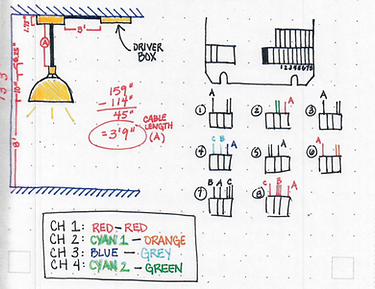 1.75"
3'
DRIVER
BOX
A
10"
8'
159"
- 114"
45"
= 3'9"
CABLE
LENGTH
(A)
1 2 3 4 5 6 7 8
1 A
2 A
3 A
4 C B A
5 A
6 A
7 B A C
8 C B A
CH 1: RED-RED
CH 2: CYAN 1 - ORANGE
CH 3: BLUE - GREY
CH 4: CYAN 2 - GREEN